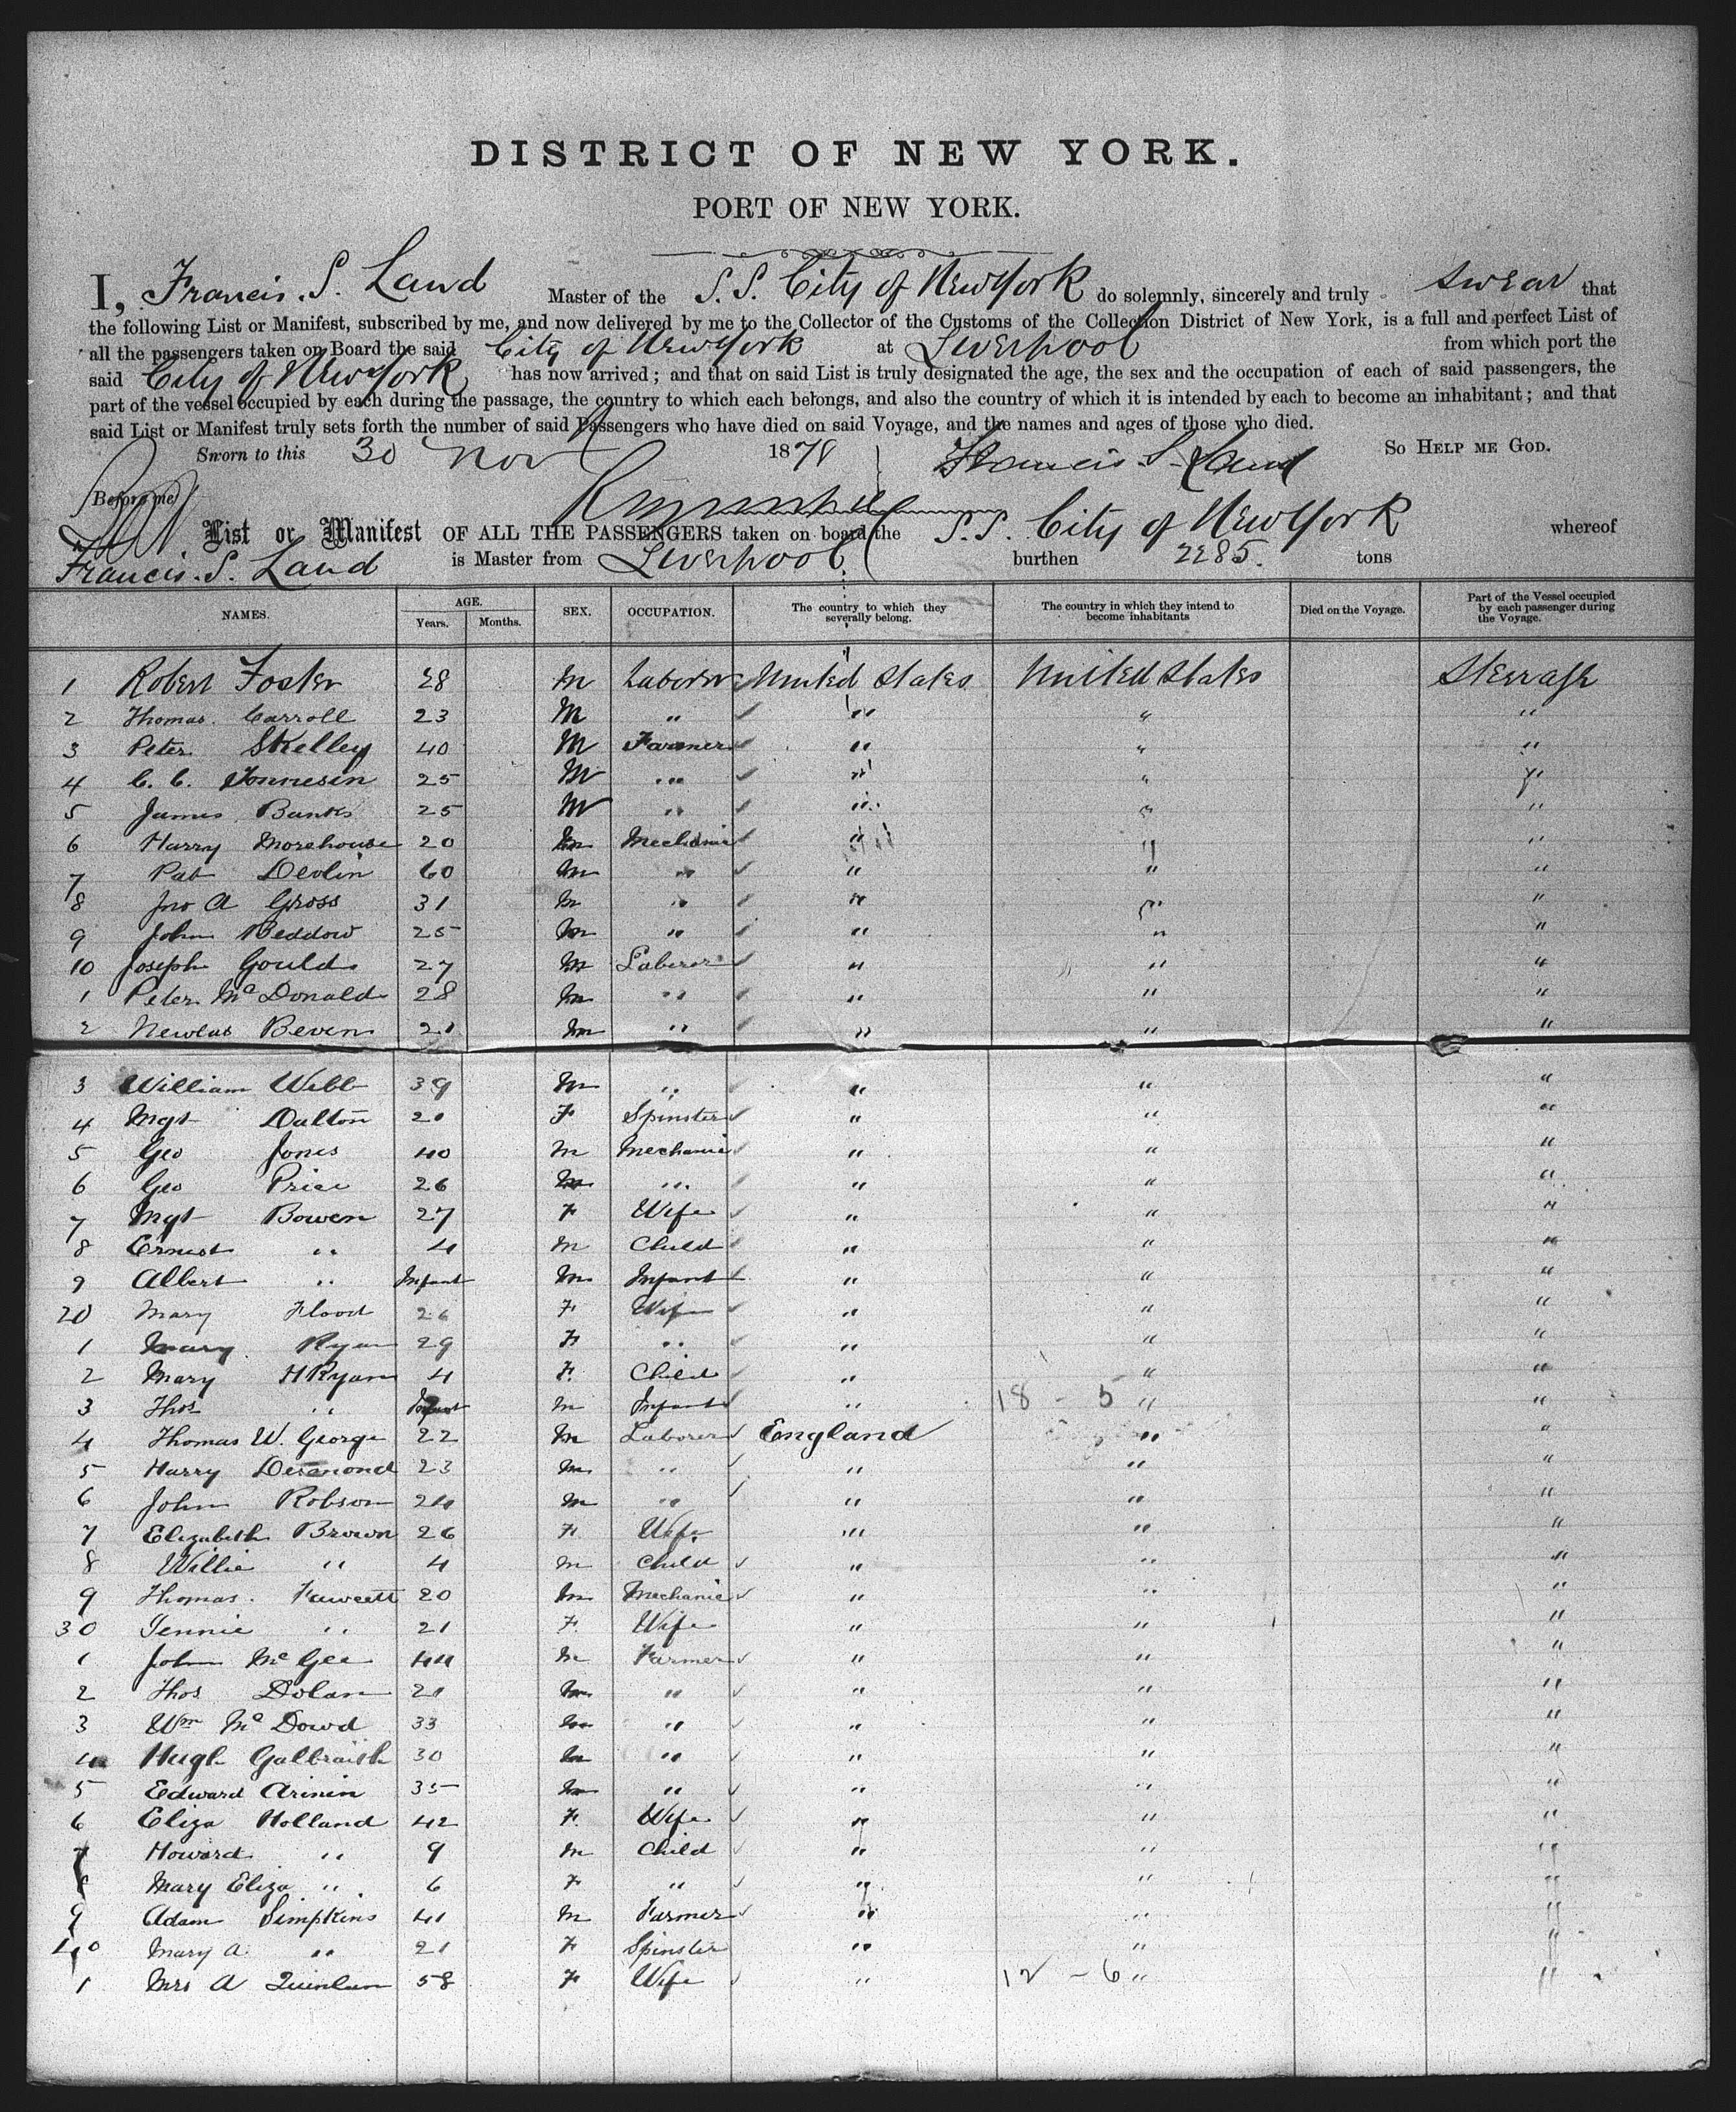 DISTRICT OF NEW YORK.
PORT OF NEW YORK.
I, Francis. S. Land Master of the S. S. City of New York do solemnly, sincerely and truly swear that
the following List or Manifest, subscribed by me, and now delivered by me to the Collector of the Customs of the Collection District of New York, is a full and perfect List of
all the passengers taken on Board the said City of New York at Liverpool from which port the
said City of New York has now arrived; and that on said List is truly designated the age, the sex and the occupation of each of said passengers, the
part of the vessel occupied by each during the passage, the country to which each belongs, and also the country of which it is intended by each to become an inhabitant; and that
said List or Manifest truly sets forth the number of said Passengers who have died on said Voyage, and the names and ages of those who died.
Sworn to this 30 Nov 1878 Francis. S. Land So HELP ME GOD.
Before me
List or Manifest OF ALL THE PASSENGERS taken on board the S. S. City of New York whereof
Francis. S. Land is Master from Liverpool burthen 2285. tons
NAMES. AGE. Years. Months. SEX. OCCUPATION. The country to which they severally belong. The country in which they intend to become inhabitants Died on the Voyage. Part of the Vessel occupied by each passenger during the Voyage.
1 Robert Foster 28 M Laborer United States United States Sterrage
2 Thomas. Carroll 23 M " " " "
3 Peter Skelley 40 M Farmer " " "
4 C. C. Tonnesin 25 M " " " "
5 James Banks 25 M " " " "
6 Harry Morehouse 20 M Mechanic " " "
7 Pat Devlin 60 M " " " "
8 Jno A Gross 31 M " " " "
9 John Beddow 25 M " " " "
10 Joseph Gould 27 M Laborer " " "
1 Peter McDonald 28 M " " " "
2 Beven 21 M " " " "
3 William Webb 39 M " " " "
4 Mgt Dalton 21 F Spinster " " "
5 Geo Jones 40 M Mechanic " " "
6 Geo Price 26 M " " " "
7 Mgt Bowen 27 F Wife " " "
8 Ernest " 4 M Child " " "
9 Albert " Infant M Infant " " "
20 Mary Flood 26 F Wife " " "
1 Mary Ryan 29 F " " " "
2 Mary H Ryan 4 F. Child " " "
3 Thos " Infant M Infant " 18 - 5 " "
4 Thomas W. George 22 M Laborer England " "
5 Harry Desmond 23 M " " " "
6 John Robson 24 M " " " "
7 Elizabeth Brown 26 F Wife " " "
8 Willie " 4 M Child " " "
9 Thomas. Fawcett 20 M Mechanic " " "
30 Jennie " 21 F. Wife " " "
1 John McGee 44 M Farmer " " "
2 Thos Dolan 21 M " " " "
3 Wm McDowd 33 M " " " "
4 Hugh Galbraith 30 M " " " "
5 Edward 35 M " " " "
6 Eliza Holland 42 F. Wife " " "
7 Howard " 9 M Child " " "
8 Mary Eliza " 6 F " " " "
9 Adam Simpkins 41 M Farmer " " "
40 Mary A " 21 F Spinster " " "
1 Mrs A Quinlan 58 F Wife " 12 - 6 " "